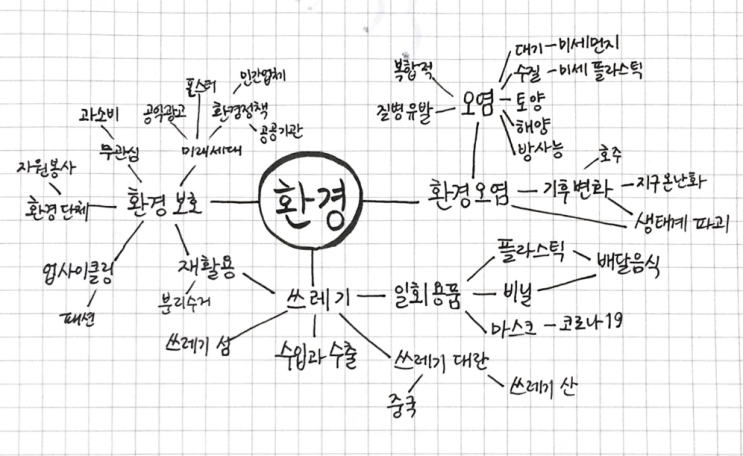 대기-미세먼지
복합적
수질-미세 플라스틱
포스터
인간업체
오염
토양
질병유발
과소비
공익광고
환경정책
해양
공공기관
방사능
무관심
미래세대
호주
자원봉사
환경
환경오염
기후변화
지구온난화
환경단체
환경 보호
생태계 파괴
플라스틱
배달음식
업사이클링
재활용
분리수거
쓰레기
일회용품
비닐
패션
마스크-코로나19
쓰레기 섬
수입과 수출
쓰레기 대란
쓰레기 산
중국